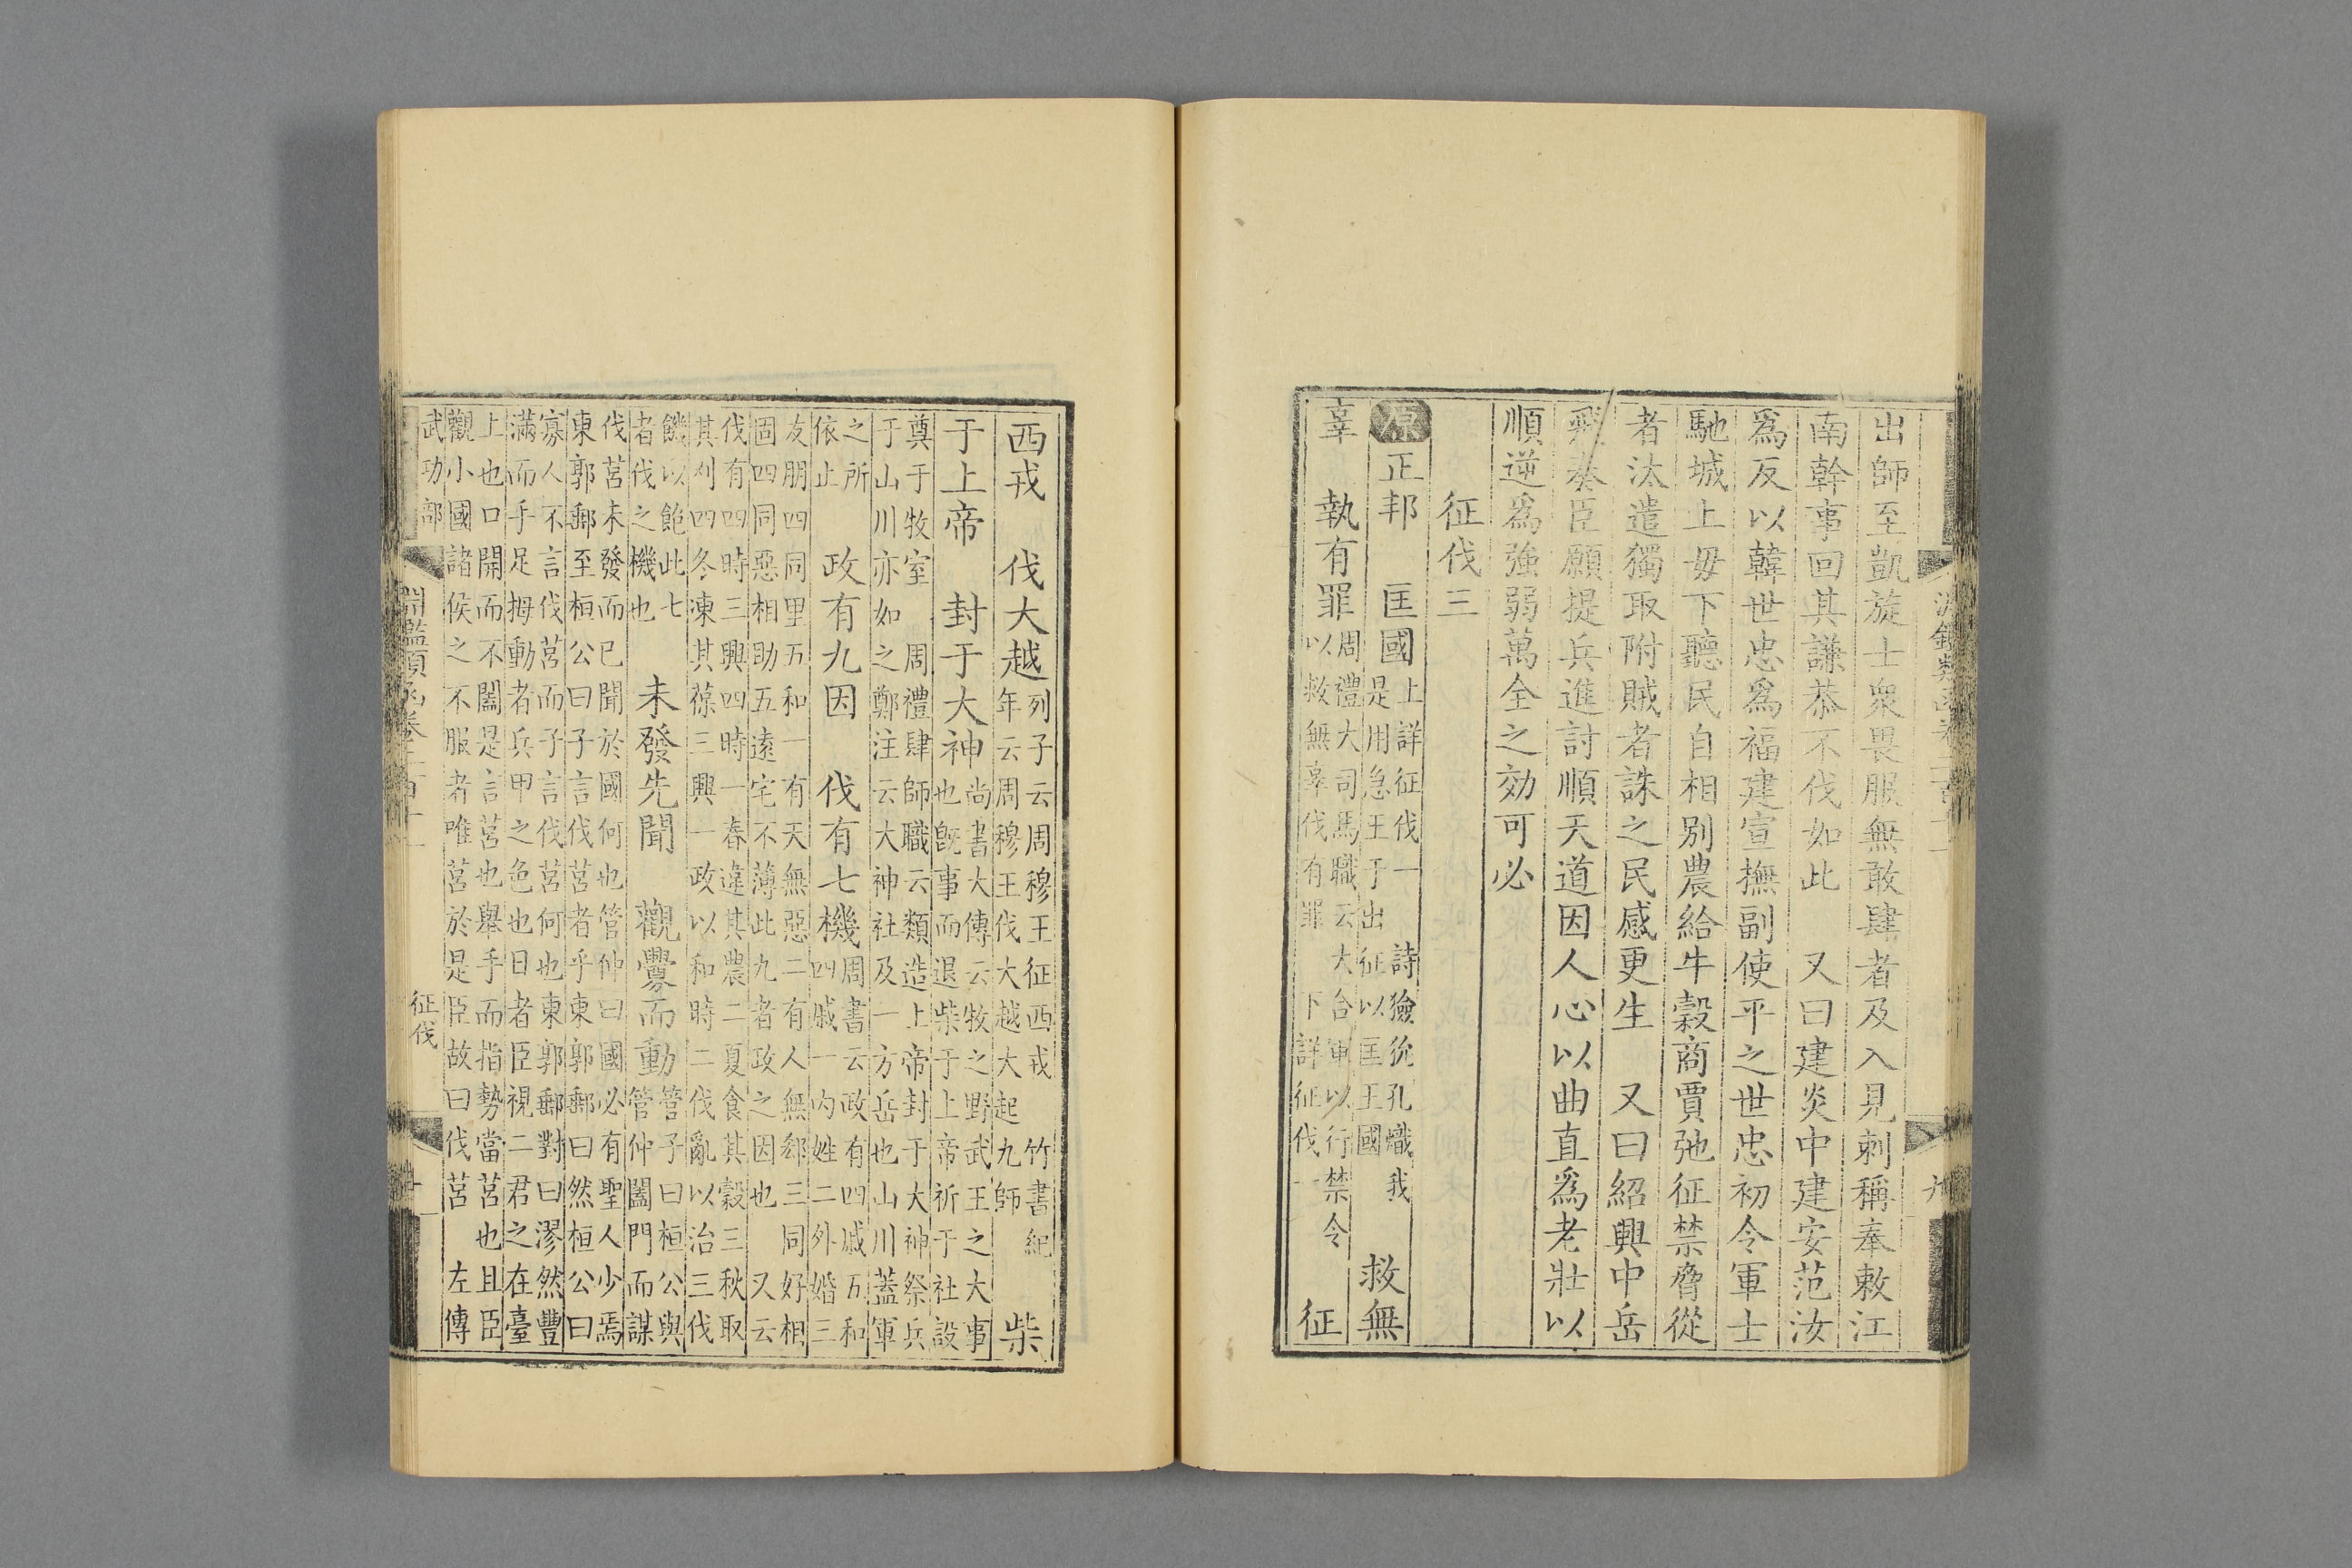 出師至凱旋士衆畏服無敢肆者及入見刺稱奉敕江
南幹事回其謙恭不伐如此　又曰建炎中建安范汝
爲反以韓世忠爲福建宣撫副使平之世忠初令軍士
馳城上毋下聽民自相別農給牛穀商賈弛征禁脅從
者汰遣獨取附賊者誅之民感更生　又曰紹興中岳
飛奏臣願提兵進討順天道因人心以曲直爲老壯以
順逆爲強弱萬全之効可必
征伐三
原　正邦　匡國
上詳征伐一　詩獫狁孔熾我
是用急王于出征以匡王國
救無
辜　執有罪
周禮大司馬職云大合軍以行禁令
以救無辜伐有罪　下詳征伐一
征
西戎　伐大越
列子云周穆王征西戎　竹書紀
年云周穆王伐大越大起九師
柴
于上帝　封于大神
尚書大傳云牧之野武王之大事
也既事而退柴于上帝祈于社設
奠于牧室　周禮肆師職云類造上帝封于大神祭兵
于山川亦如之鄭注云大神社及一方岳也山川蓋軍
之所
依止
政有九因　伐有七機
周書云政有四戚五和
四戚一内姓二外婚三
友朋四同里五和一有天無惡二有人無郄三同好相
固四同惡相助五遠宅不薄此九者政之因也　又云
伐有四時三興四時一春違其農二夏食其穀三秋取
其刈四冬凍其葆三興一政以和時二伐亂以治三伐
饑以飽此七
者伐之機也
未發先聞　觀釁而動
管子曰桓公與
管仲闔門而謀
伐莒未發而已聞於國何也管仲曰國必有聖人少焉
東郭郵至桓公曰子言伐莒者乎東郭郵曰然桓公曰
寡人不言伐莒而子言伐莒何也東郭郵對曰漻然豐
滿而手足拇動者兵甲之色也日者臣視二君之在臺
上也口開而不闔是言莒也舉手而指勢當莒也且臣
觀小國諸侯之不服者唯莒於是臣故曰伐莒　左傳
武功部
征伐